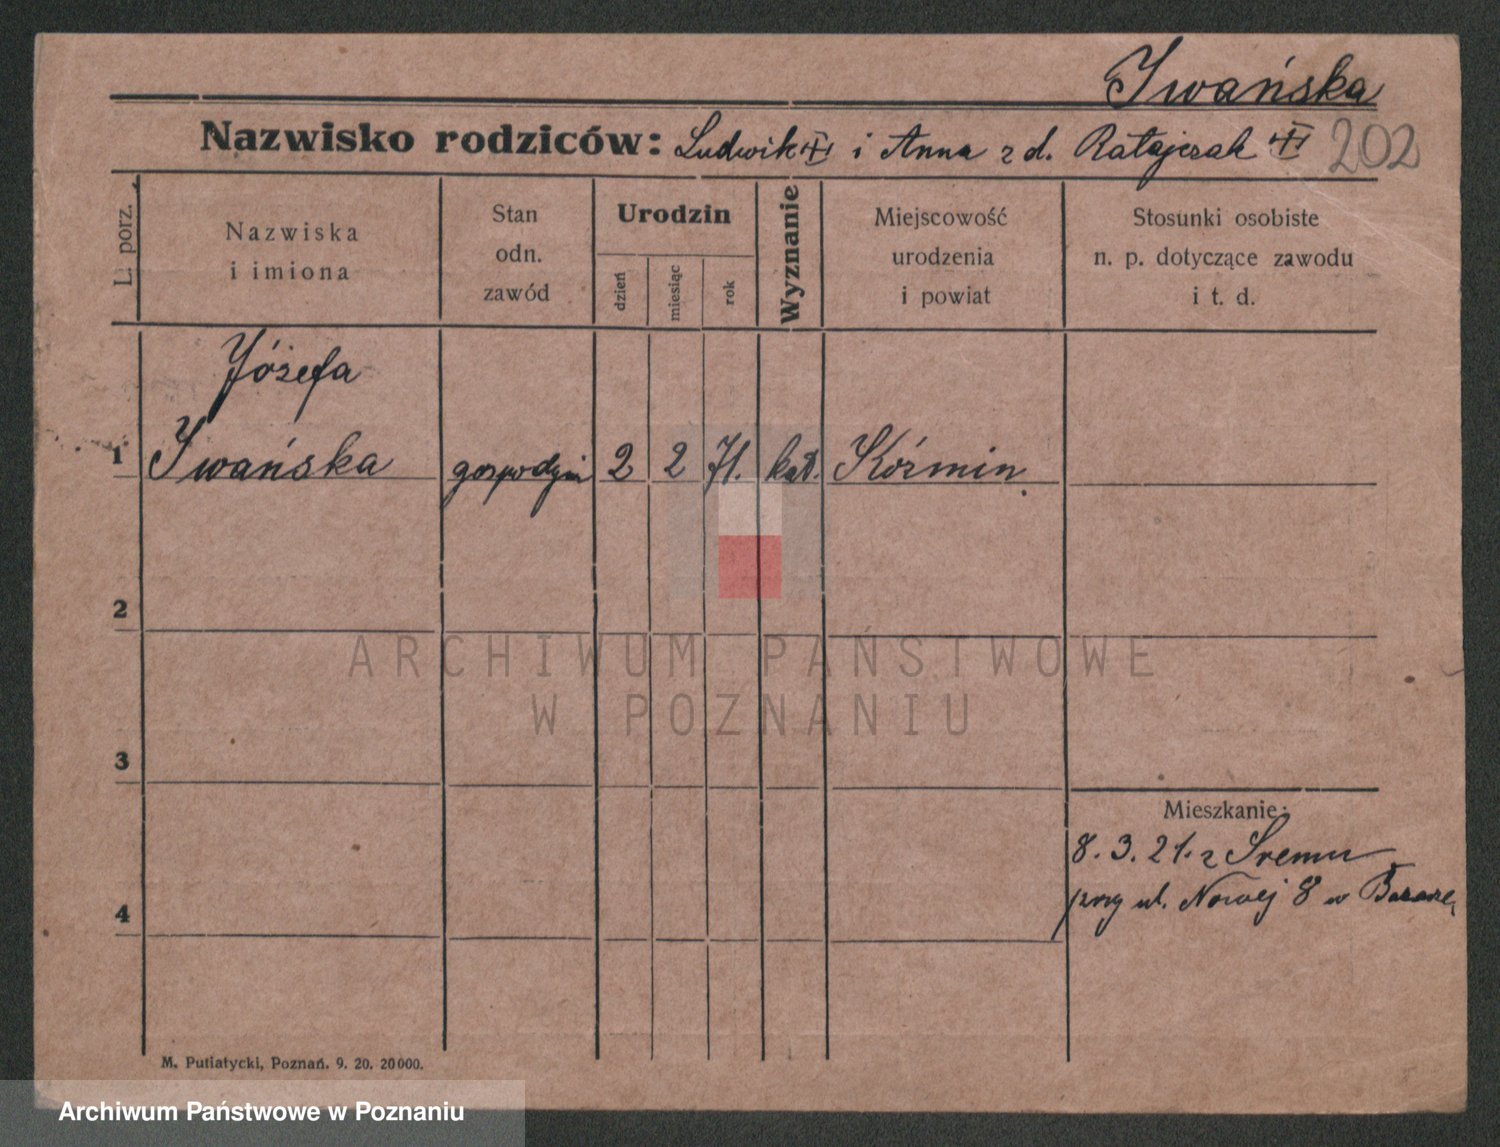 Iwańska
Nazwisko rodziców: Ludwik i Anna z d. Ratajczak 202
L. porz.
Nazwiska
i imiona
Stan
odn.
zawód
Urodzin
dzień
miesiąc
rok
Wyznanie
Miejscowość
urodzenia
i powiat
Stosunki osobiste
n. p. dotyczące zawodu
i t. d.
Józefa
1 Iwańska gospodyni 2 2 71. kat. Koźmin
2
3
4
Mieszkanie:
8. 3. 21. z Śremu
przy ul. Nowej 8 w
ARCHIWUM PAŃSTWOWE
W POZNANIU
M. Putiatycki, Poznań. 9. 20. 20000.
Archiwum Państwowe w Poznaniu